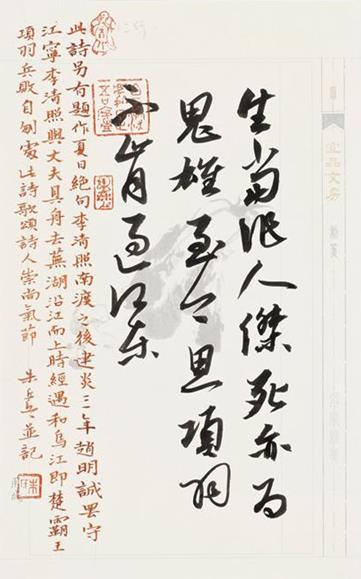 宜品文房
生當作人傑死亦為
鬼雄至今思項羽
不肯過江東
此詩另有題作夏日絕句李清照南渡之後建炎三年趙明誠罷守
江寧李清照與丈夫具舟去蕪湖沿江而上時經過和烏江即楚霸王
項羽兵敗自刎處此詩歌頌詩人崇尚氣節 朱 並記